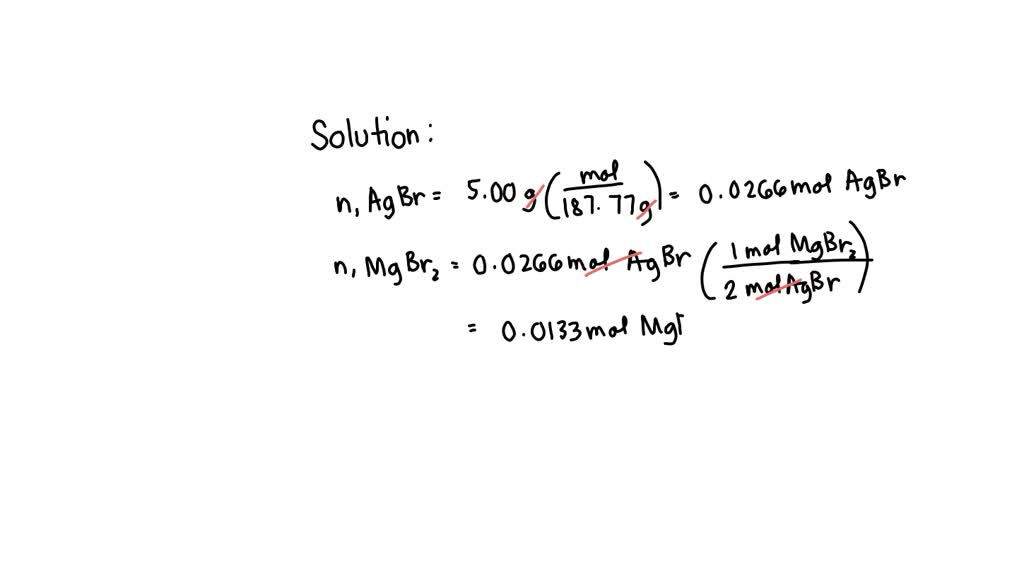 Solution:
n, AgBr = 5.00 g (mol / 187.77g) = 0.0266 mol AgBr
n, MgBr₂ = 0.0266 mol AgBr (1 mol MgBr₂ / 2 mol AgBr)
= 0.0133 mol Mg